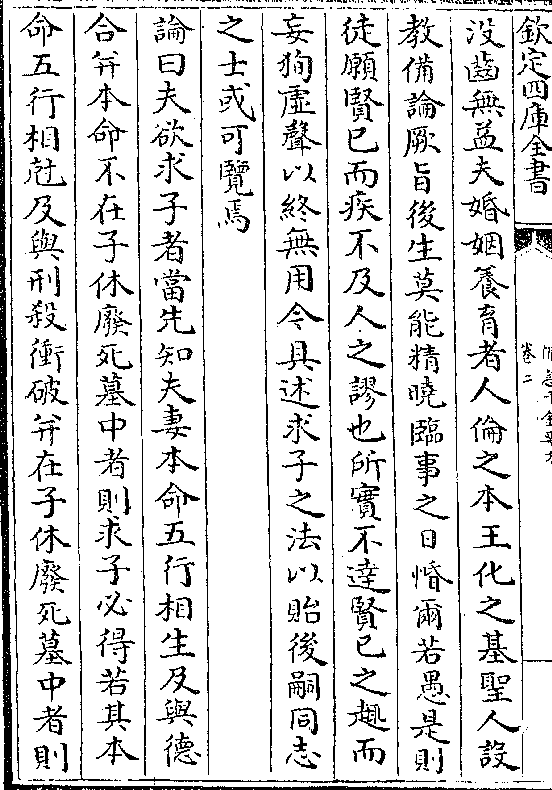 欽定四庫全書
卷二
沒齒無益夫婚姻養育者人倫之本王化之基聖人設
教備論厥旨後生莫能精曉臨事之日惛爾若愚是則
徒願賢已而疾不及人之謬也所實不達賢已之趣而
妄狥虛聲以終無用今具述求子之法以貽後嗣同志
之士或可覽焉
論曰夫欲求子者當先知夫妻本命五行相生及與德
合并本命不在子休廢死墓中者則求子必得若其本
命五行相尅及與刑殺衝破并在子休廢死墓中者則